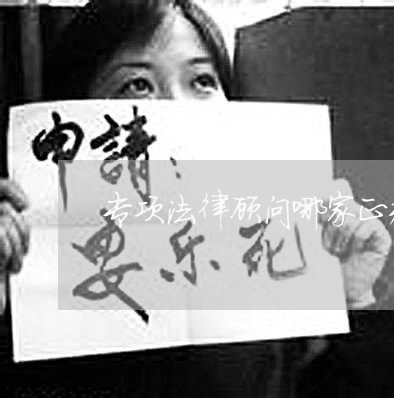 申請：
专项法律顾问哪家正
安乐死